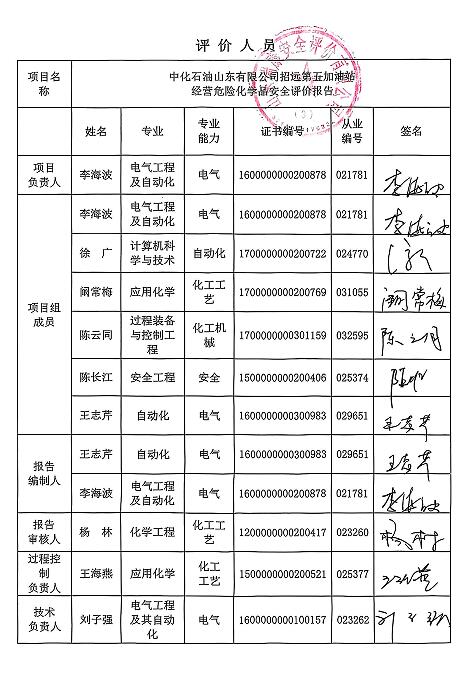 评价人员
项目名称 中化石油山东有限公司招远第五加油站
经营危险化学品安全评价报告
姓名 专业 专业能力 证书编号 从业编号 签名
项目负责人 李海波 电气工程及自动化 电气 1600000000200878 021781 李海波
项目组成员 李海波 电气工程及自动化 电气 1600000000200878 021781 李海波
徐广 计算机科学与技术 自动化 1700000000200722 024770
阚常梅 应用化学 化工工艺 1700000000200769 031055 阚常梅
陈云同 过程装备与控制工程 化工机械 1700000000301159 032595 陈云同
陈长江 安全工程 安全 1500000000200406 025374
王志芹 自动化 电气 1600000000300983 029651 王志芹
报告编制人 王志芹 自动化 电气 1600000000300983 029651 王志芹
李海波 电气工程及自动化 电气 1600000000200878 021781 李海波
报告审核人 杨林 化学工程 化工工艺 1200000000200417 023260 杨林
过程控制负责人 王海燕 应用化学 化工工艺 1500000000200521 025377 王海燕
技术负责人 刘子强 电气工程及其自动化 电气 1600000000100157 023262 刘子强